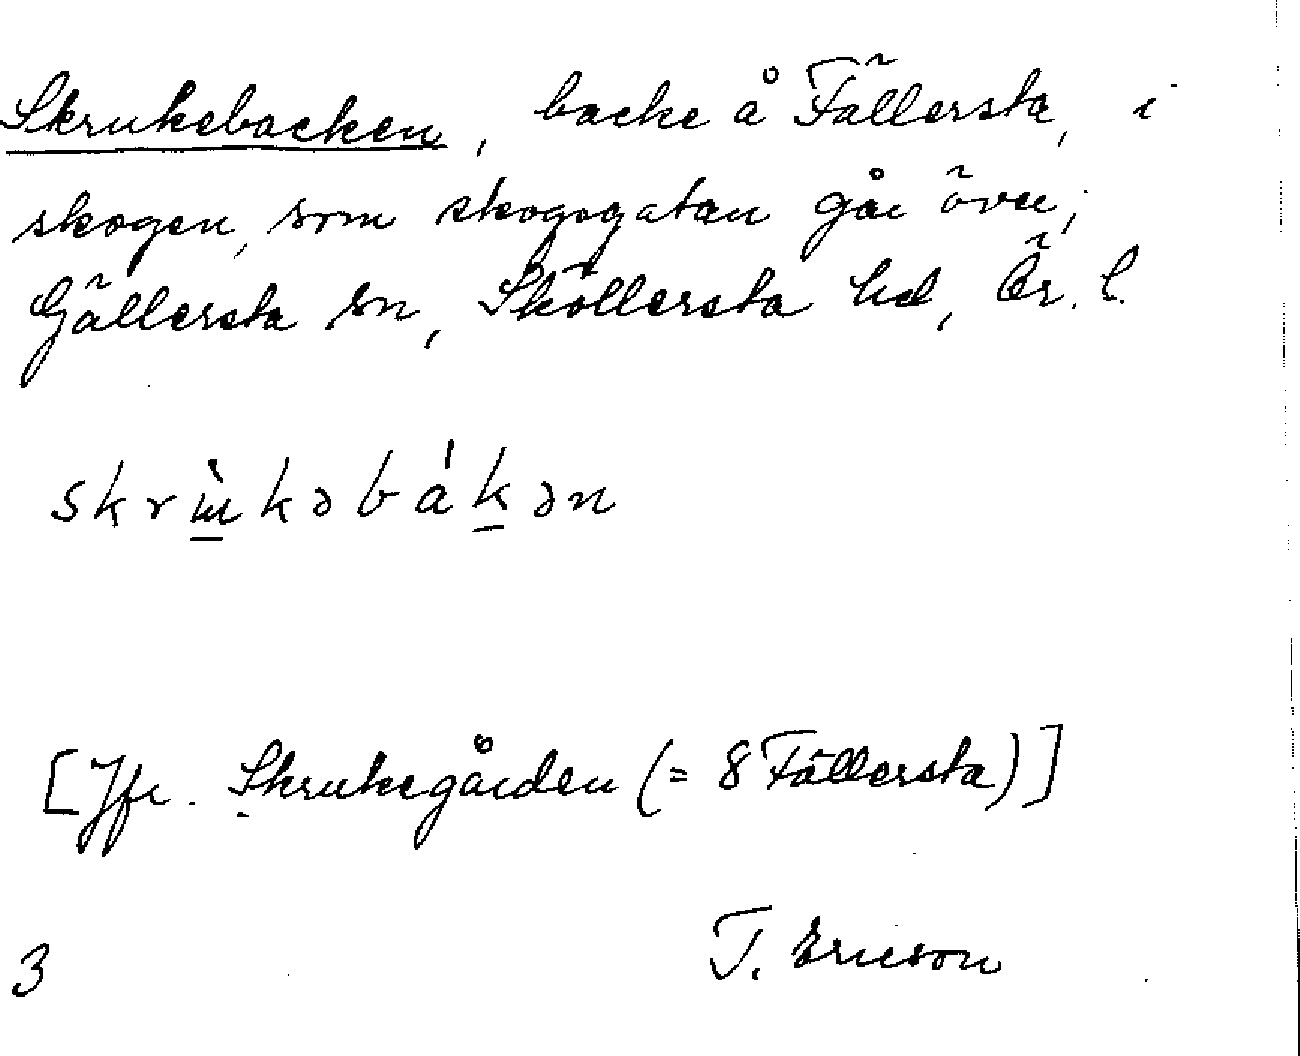 Skrukebacken, backe å Fällersta, i
skogen, som skogsgatan går över;
Gällersta sn, Sköllersta hd, Ör. l.
skrɯ̀kəbákən
[Jfr. Skrukegården (= 8 Fällersta)]
3 T. Ericson